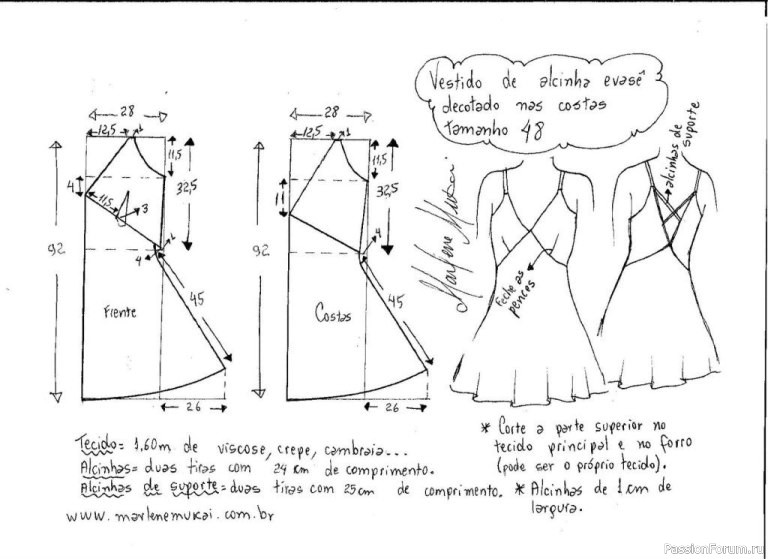 Vestido de alcinha evasê
decotado nas costas
tamanho 48
28
12,5
1
11,5
4
32,5
11,5
3
92
1
4
45
Frente
26
28
12,5
1
11,5
11
32,5
92
4
45
Costas
26
Marlene Mukai
alcinhas de
suporte
Feche as
pences
Tecido = 1,60m de viscose, crepe, cambraia...
Alcinhas = duas tiras com 24 cm de comprimento.
Alcinhas de suporte = duas tiras com 25cm de comprimento.
www.marlenemukai.com.br
* Corte a parte superior no
tecido principal e no forro
(pode ser o próprio tecido).
* Alcinhas de 1 cm de
largura.
PassionForum.ru